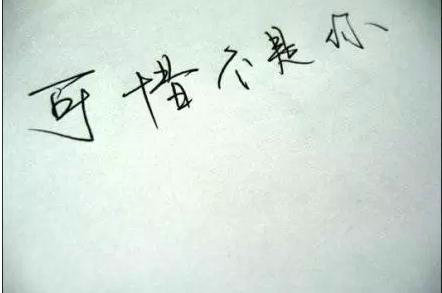 可惜不是你